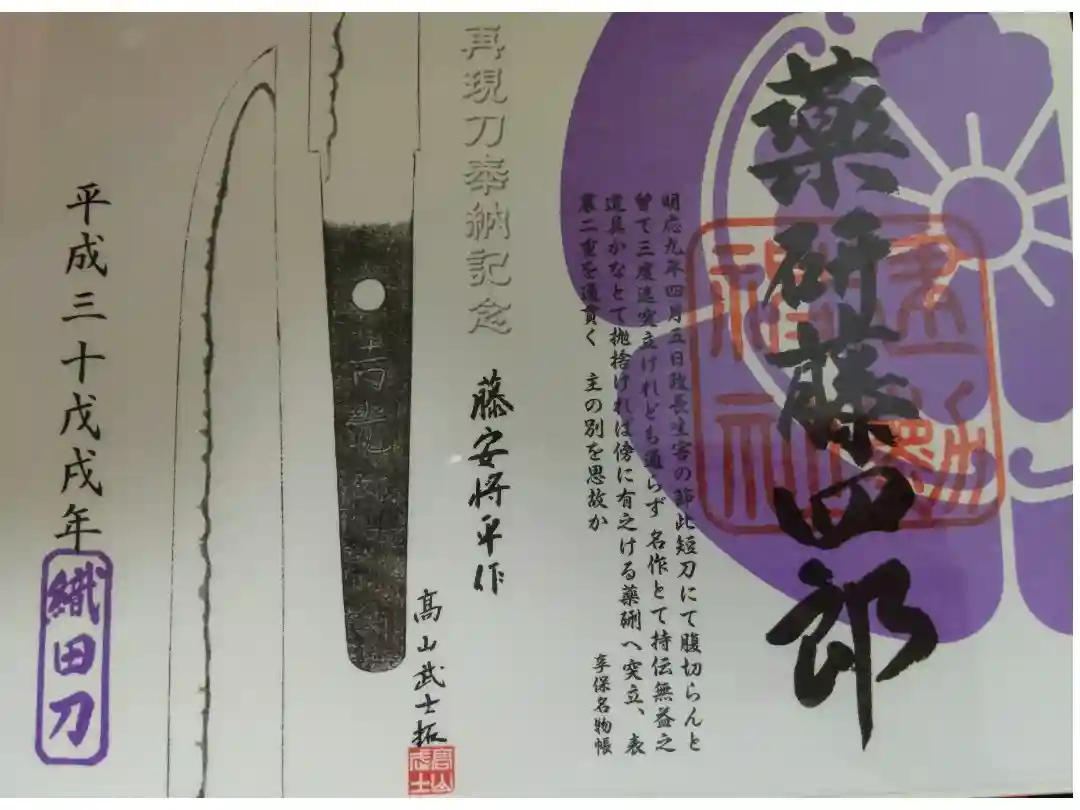 薬研藤四郎
建勲
神社
明応九年四月五日政長生害の節此短刀にて腹切らんと
曽て三度迄突立けれども通らず 名作とて持伝無益之
道具かなとて抛捨ければ傍に有之ける薬硎へ突立、表
裏二重を通貫く 主の別を思故か
享保名物帳
再現刀奉納記念
藤安将平作
髙山武士拓
髙山
武士
平成三十戊戌年
織田刀